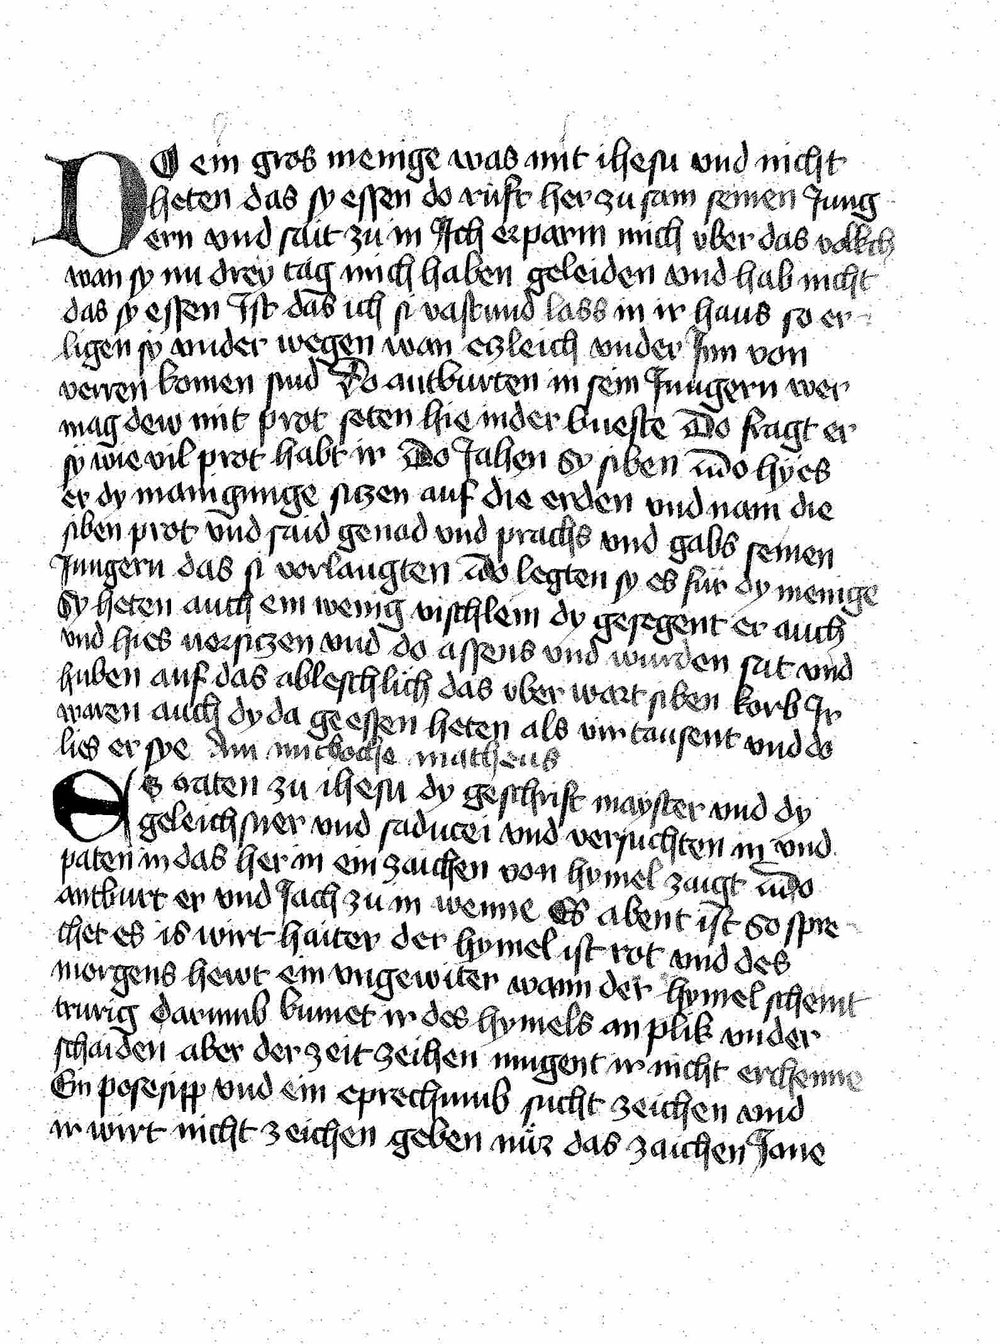 DO ein gros menige was mit ihesu vnd nicht
heten das sy essen do rüft her zu sam seinen Jung
ern vnd sait zu in Ich erparm mich vber das volkch
wan sy nu drey tag mich haben geleiden vnd hab nicht
das sy essen Ist das ich si vastund lass in ir haus so er
ligen sy vnder wegen wan etzleich vnder Jnn von
verren komen sind Do antburten in sein Jungern wer
mag dew mit prot seten hie in der bueste Do fragt er
sy wie vil prot habt ir Do Jahen Sy siben Do hyes
er dy manigunge sitzen auf die erden vnd nam die
siben prot vnd said genad vnd prachs vnd gabs seinen
Jungern das si vorlangten Do legten sy es für dy menige
Sy heten auch ein wenig vischlein dy gesegent er auch
vnd hies versitzen vnd do assens vnd wurden sat vnd
huben auf das ableschlich das vber wart siben korb Ir
waren auch dy da geessen heten als vir tausent vnd do
lies er sye Am mitboche matheus
ES traten zu ihesu dy geschrift mayster vnd dy
geleichsner vnd saducei vnd versuchten in vnd
paten in das her in ein zaichen von hymel zaigt Do
antburt er vnd Jach zu in wenne Es abent ist So spre
chet es is wirt haiter der hymel ist rot vnd des
morgens hewt ein vngewiter wann der hymel scheint
trurig darumb kumet ir des hymels an plik vnder
schaiden aber der zeit zeihen mugent ir nicht erchenne
Ein posesipp vnd ein eprechumb sucht zeichen vnd
ir wirt nicht zeichen geben nür das zaichen Jone